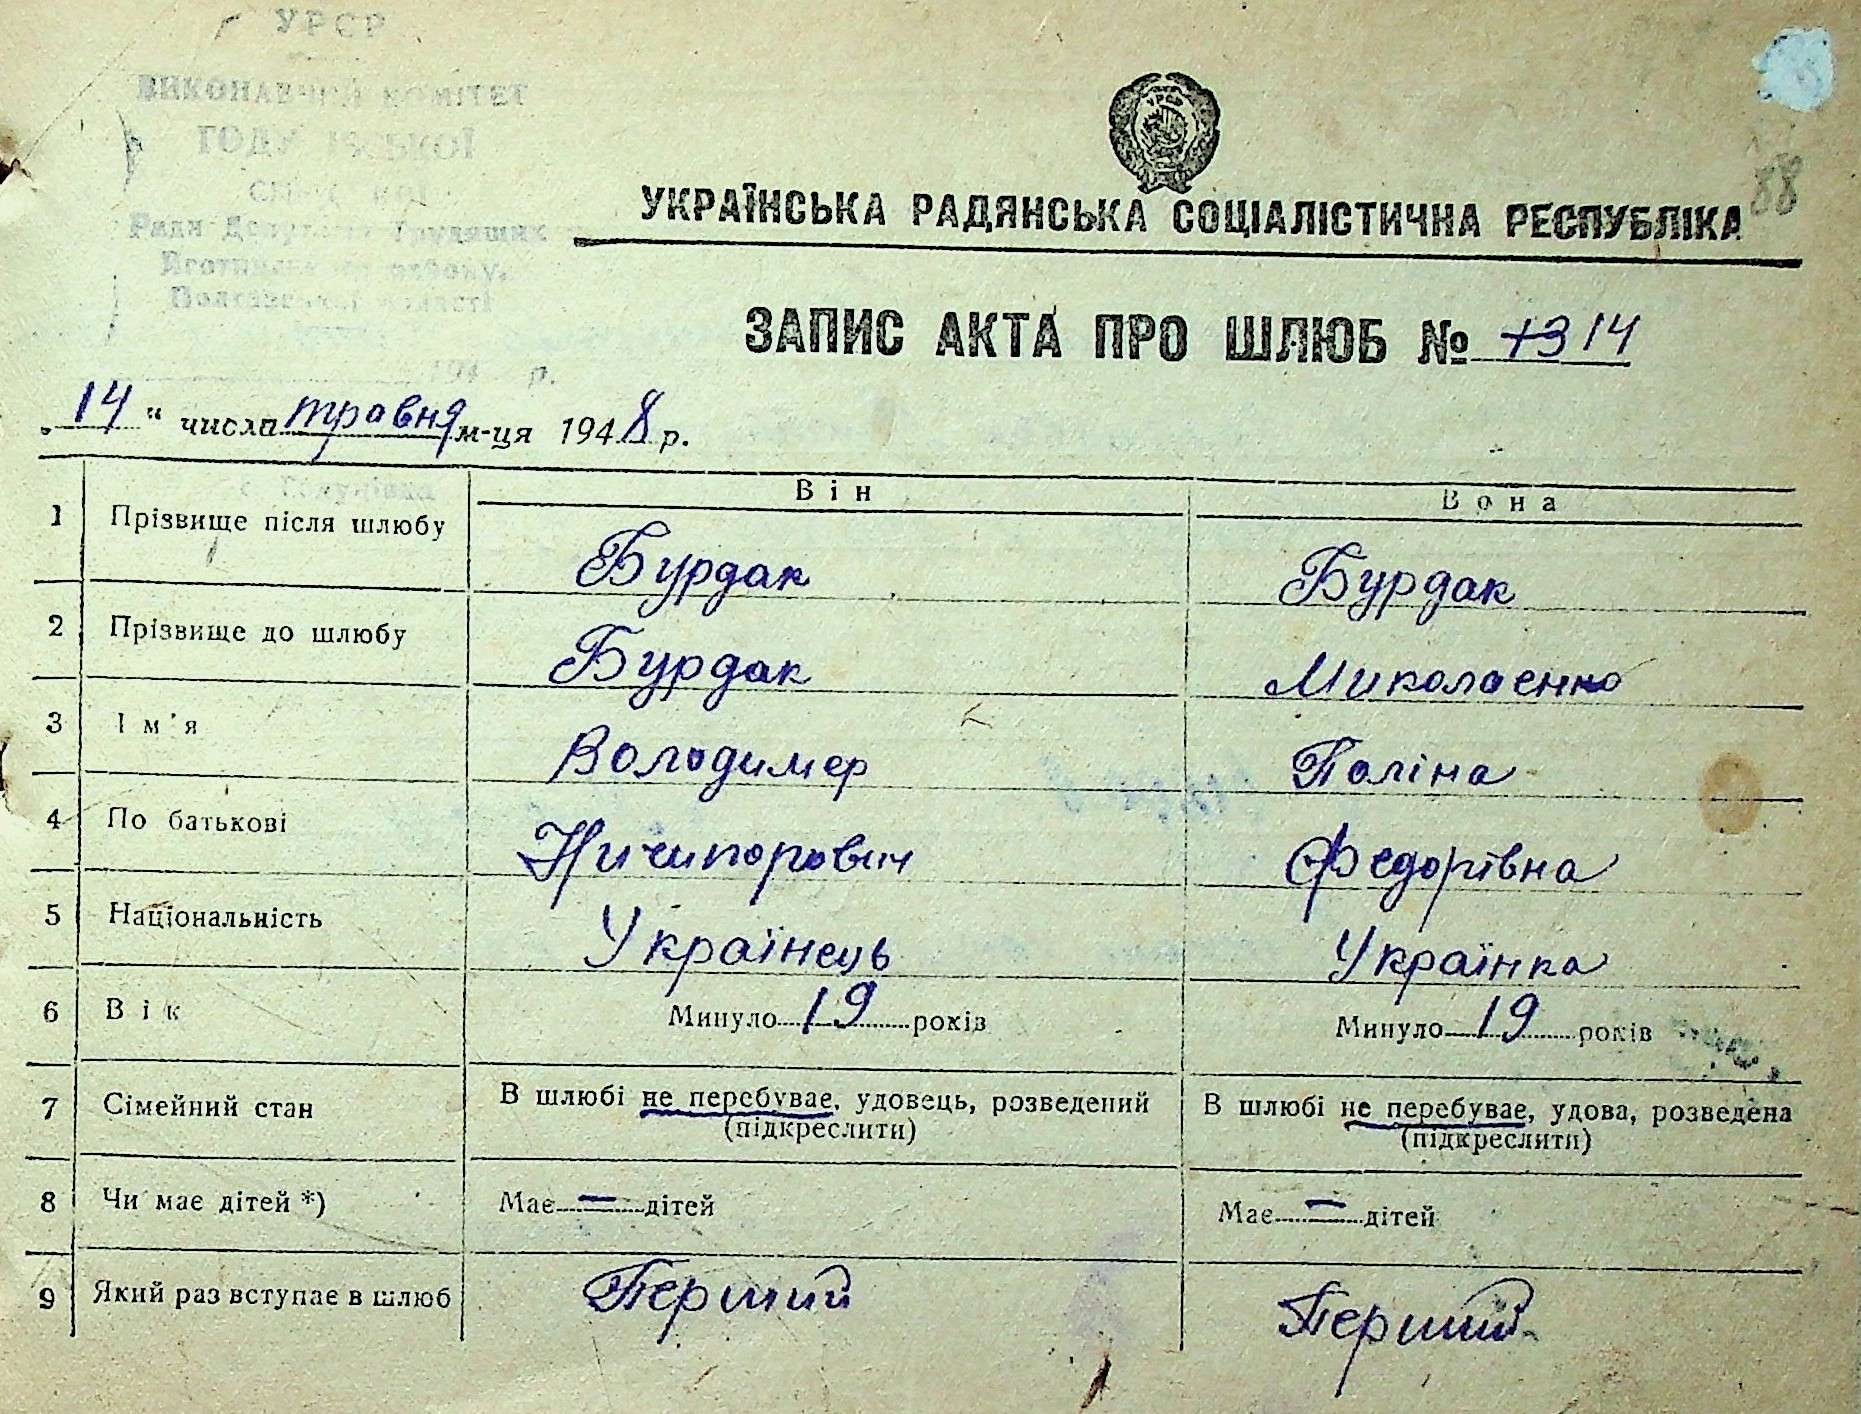 УРСР
ВИКОНАВЧИЙ КОМІТЕТ
Ради Депутатів Трудящих
Яготинського району,
Полтавської області
194 р.
с. Годунівка
88
УКРАЇНСЬКА РАДЯНСЬКА СОЦІАЛІСТИЧНА РЕСПУБЛІКА
ЗАПИС АКТА ПРО ШЛЮБ № 13 14
„14“ числа травня м-ця 1948 р.
Він Вона
1 Прізвище після шлюбу Бурдак Бурдак
2 Прізвище до шлюбу Бурдак Миколаенко
3 Ім'я Володимер Поліна
4 По батькові Ничипорович Федорівна
5 Національність Українець Українка
6 Вік Минуло 19 років Минуло 19 років
7 Сімейний стан В шлюбі не перебуває, удовець, розведений В шлюбі не перебуває, удова, розведена
(підкреслити) (підкреслити)
8 Чи має дітей *) Має — дітей Має — дітей
9 Який раз вступає в шлюб Перший Перший